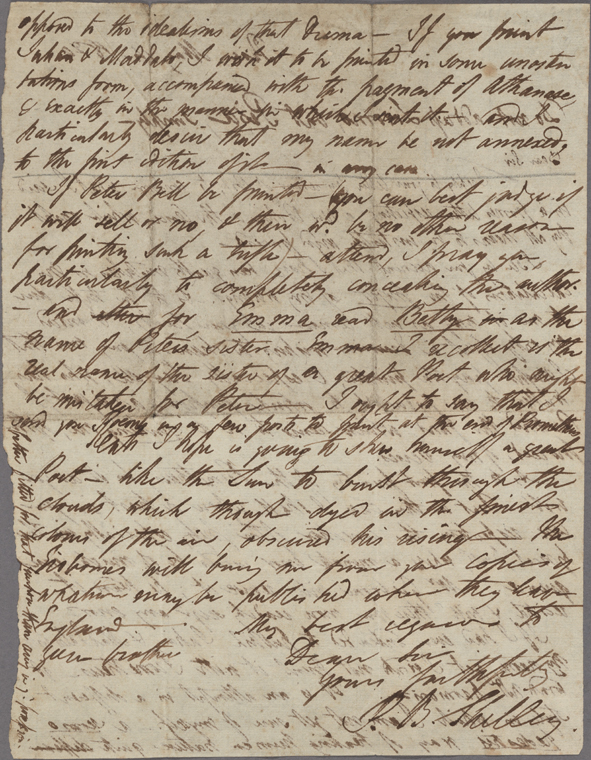 opposed to the idealisms of that Drama — If you print
Julian & Maddalo I wish it to be printed in some unosten
tatious form, accompanied with the fragment of Athanase
& exactly in the manner in which I sent it — and I
particularly desire that my name be not annexed,
to the first edition of it — in any case
If Peter Bell be printed — (you can best judge if
it will sell or no, & there wd. be no other reason
for printing such a trifle) — attend, I pray you,
particularly to completely concealing the author.
— and for Emma read Betty as the
name of Peter's sister. Emma I recollect is the
real name of the sister of a great Poet who might
be mistaken for Peter — I ought to say that I
send you poems to print at the end of Prometheus
better fitted for that purpose than any in your possession.
Keats I hope is going to shew himself a great
Poet — like the Sun to burst through the
clouds, which though dyed in the finest
colours of the air, obscured his rising — The
Gisbornes will bring me from you copies of
whatever may be published when they leave
England —
My best regards to
your brother
Dear Sir
Yours faithfully
P. B. Shelley.